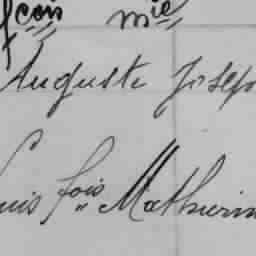 fçois mie
Auguste Joseph
Louis fois Mathurin